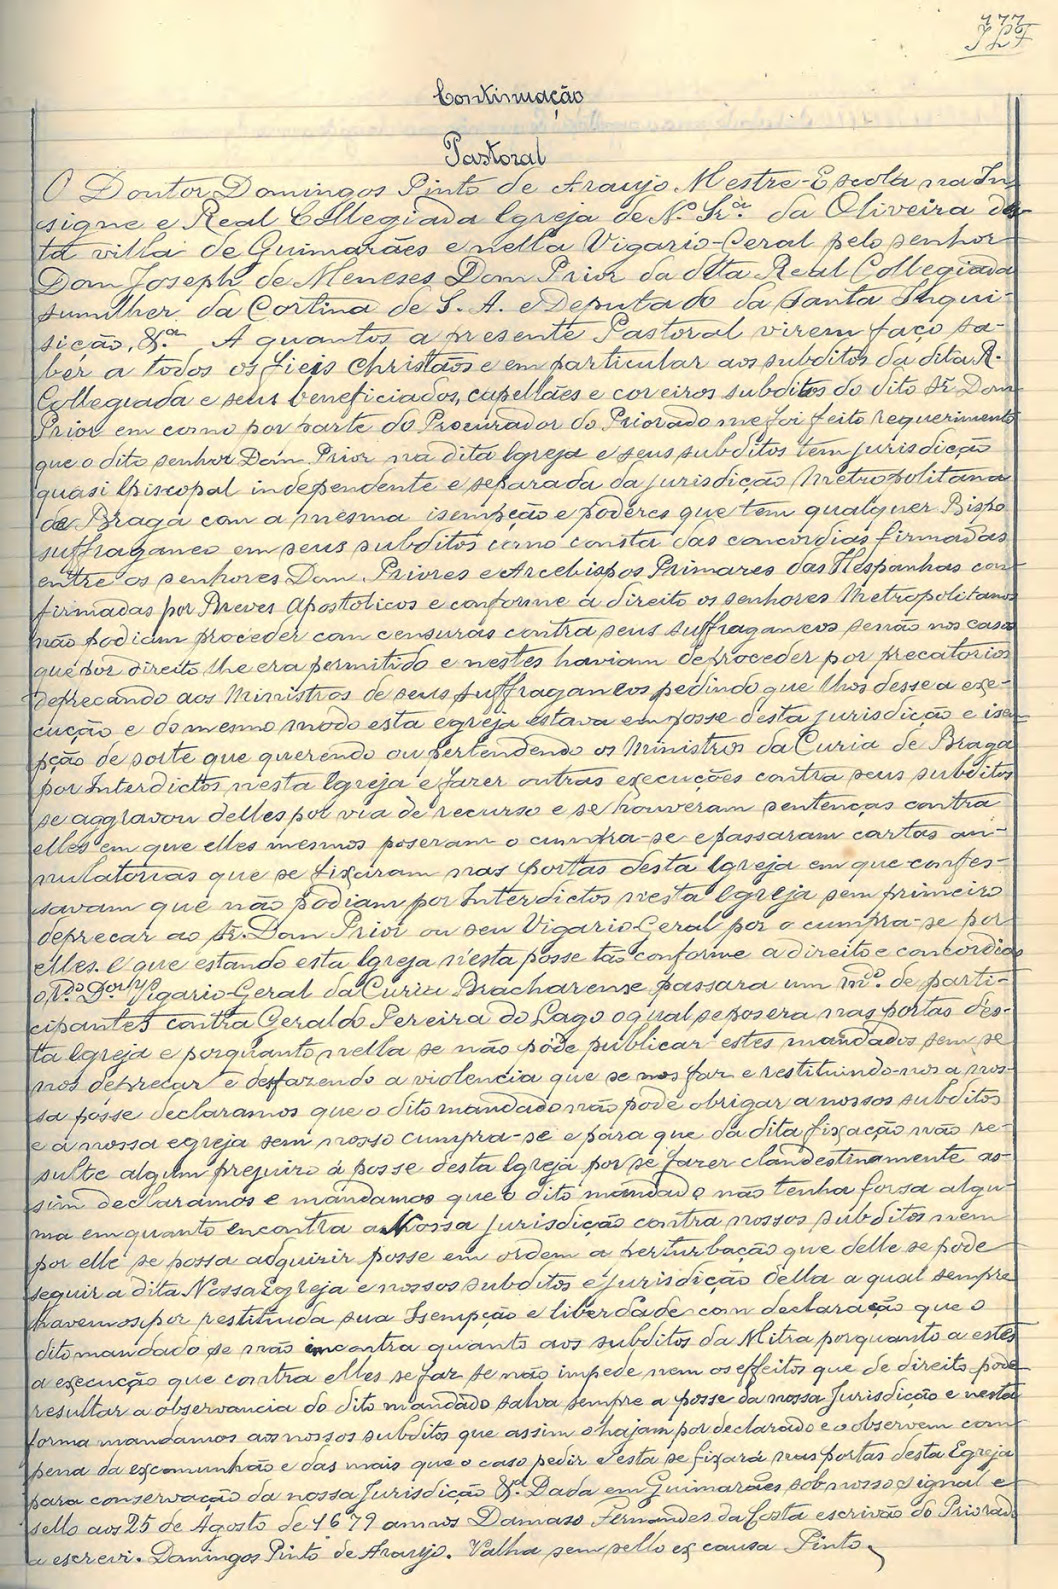 177
Continuação
Pastoral
O Doutor Domingos Pinto de Araujo Mestre-Escola na In-
signe e Real Collegiada Igreja de N.ª Sr.ª da Oliveira des-
ta villa de Guimarães e nella Vigario-Geral pelo senhor
Dom Joseph de Meneses Dom Prior da dita Real Collegiada
sumilher da Cortina de S. A. e Deputado da Santa Inqui-
sição, &.ª A quantos a presente Pastoral virem faço sa-
ber a todos os fieis Christãos e em particular aos subditos da dita R.
Collegiada e seus beneficiados, capellães e coreiros subditos do dito Sr. Dom
Prior em como por parte do Procurador do Priorado me foi feito requerimento
que o dito senhor Dom Prior na dita Igreja e seus subditos tem jurisdicção
quasi Episcopal independente e separada da jurisdicção Metropolitana
de Braga com a mesma isempção e poderes que tem qualquer Bispo
suffraganeo em seus subditos como consta das concordias firmadas
entre os senhores Dom Priores e Arcebispos Primazes das Hespanhas con-
firmadas por Breves Apostolicos e conforme a direito os senhores Metropolitanos
não podiam proceder com censuras contra seus suffraganeos senão nos casos
que por direito lhe era permitido e nestes haviam de proceder por precatorios
deprecando aos Ministros de seus suffraganeos pedindo que lhos desse a exe-
cução e do mesmo modo esta egreja estava em posse desta jurisdicção e isem-
pção de sorte que querendo ou pertendendo os Ministros da Curia de Braga
por Interdictos nesta Igreja e fazer outras execuções contra seus subditos
se aggravou delles por via de recurso e se houveram sentenças contra
elles em que elles mesmos poseram o cumpra-se e passaram cartas an-
nulatorias que se fixaram nas portas desta Igreja em que confes-
savam que não podiam por Interdictos nesta Igreja sem primeiro
deprecar ao Sr. Dom Prior ou seu Vigario-Geral por o cumpra-se por
elles. E que estando esta Igreja n'esta posse tão conforme a direito e concordias
o R.do D.or Vigario-Geral da Curia Bracharense passara um m.do de parti-
cipantes contra Geraldo Pereira do Lago o qual se posera nas portas des-
ta Igreja e porquanto nella se não póde publicar estes mandados sem se
nos deprecar e desfazendo a violencia que se nos faz e restituindo-nos a nos-
sa pósse declaramos que o dito mandado não póde obrigar a nossos subditos
e a nossa egreja sem nosso cumpra-se e para que da dita fixação não re-
sulte algum prejuizo á posse desta Igreja por se fazer clandestinamente as-
sim declaramos e mandamos que o dito mandado não tenha forsa algu-
ma emquanto encontra a Nossa Jurisdicção contra nossos subditos nem
por elle se possa adquirir posse em ordem a perturbação que delle se pode
seguir a dita Nossa Egreja e nossos subditos e jurisdicção della a qual sempre
havemos por restituida sua Isempção e liberdade com declaração que o
dito mandado se não encontra quanto aos subditos da Mitra porquanto a estes
a execução que contra elles se faz se não impede nem os effeitos que de direito pode
resultar a observancia do dito mandado salva sempre a posse da nossa Jurisdicção e nesta
forma mandamos aos nossos subditos que assim o hajam por declarado e o observem com
pena da excomunhão e das mais que o caso pedir e esta se fixará nas portas desta Egreja
para conservação da nossa Jurisdicção &.ª Dada em Guimarães sob nosso signal e
sello aos 25 de Agosto de 1679 annos Damaso Fernandes da Costa escrivão do Priorado
a escrevi. Domingos Pinto de Araujo. Valha sem sello ex causa Pinto